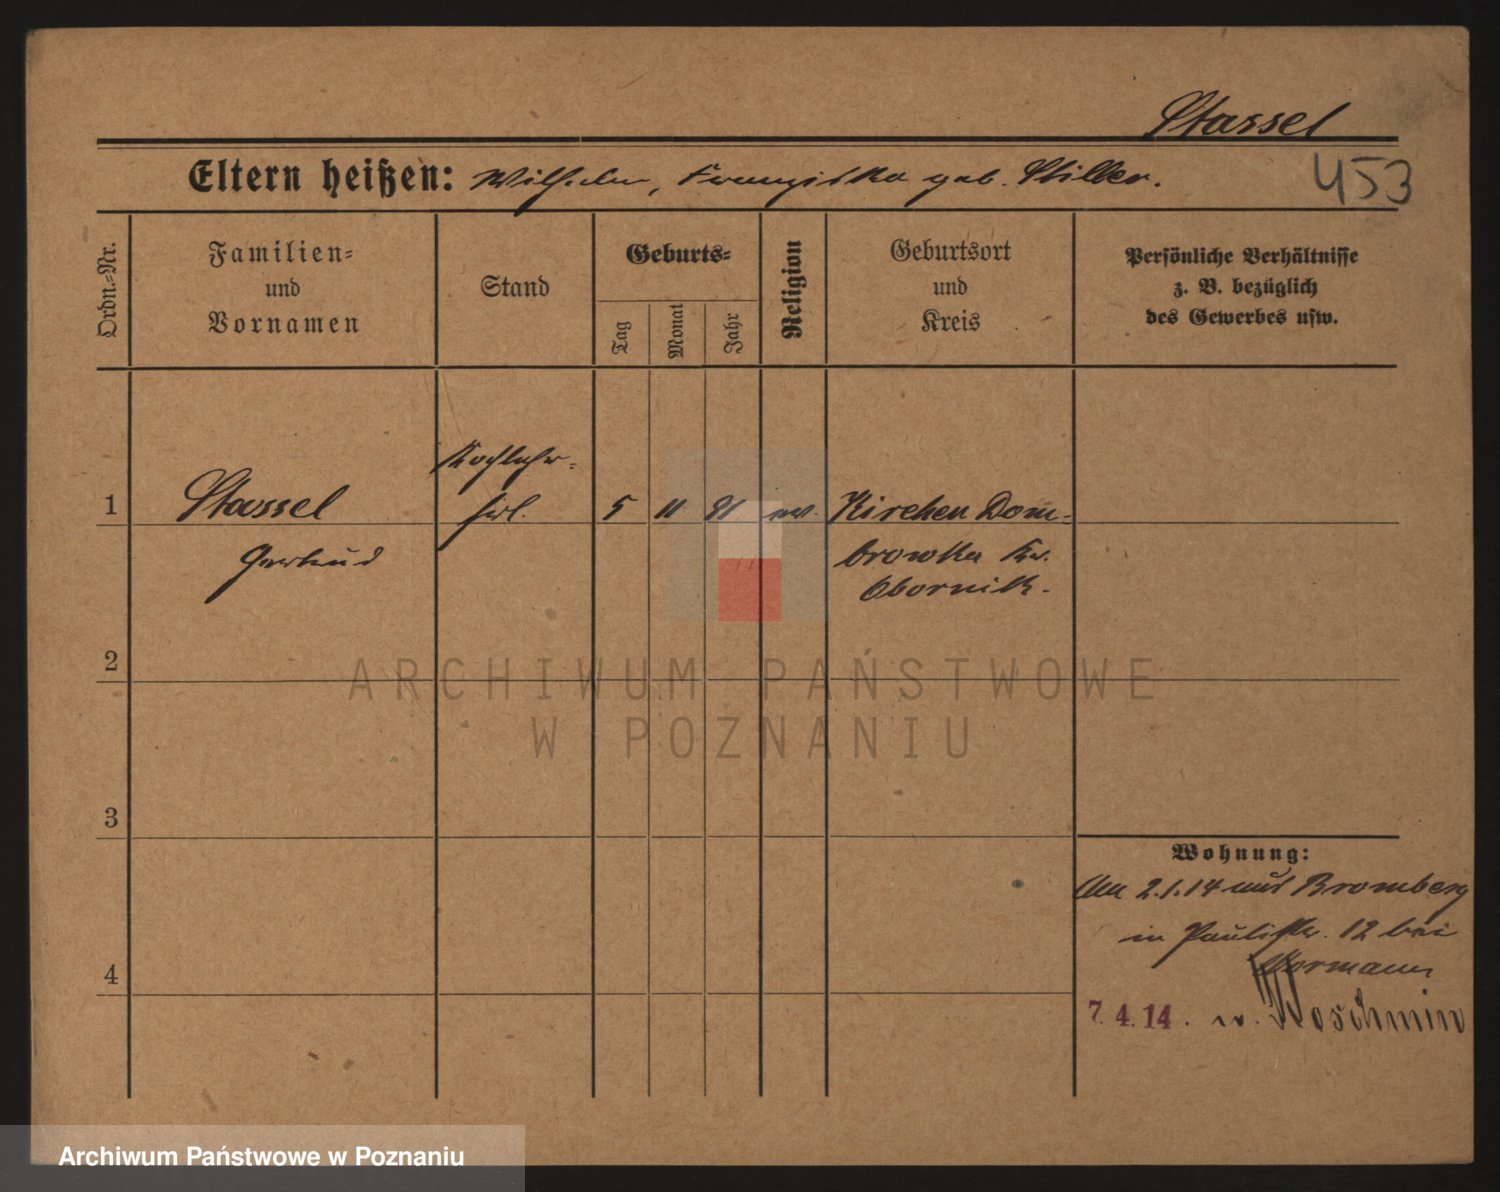 Stassel
Eltern heißen: Wilhelm, Franziska geb. Stiller.
453
Ordn.-Nr.
Familien-
und
Vornamen
Stand
Geburts-
Tag
Monat
Jahr
Religion
Geburtsort
und
Kreis
Persönliche Verhältnisse
z. B. bezüglich
des Gewerbes usw.
1
Stassel
Gertrud
Kochlehr-
frl.
5
11
91
ev.
Kirchen Dom-
browka Kr.
Obornik.
2
3
4
Wohnung:
Am 2.1.14 aus Bromberg
in Paulistr. 12 bei
Wormann
7. 4. 14. n. Woschmin
ARCHIWUM PAŃSTWOWE
W POZNANIU
Archiwum Państwowe w Poznaniu